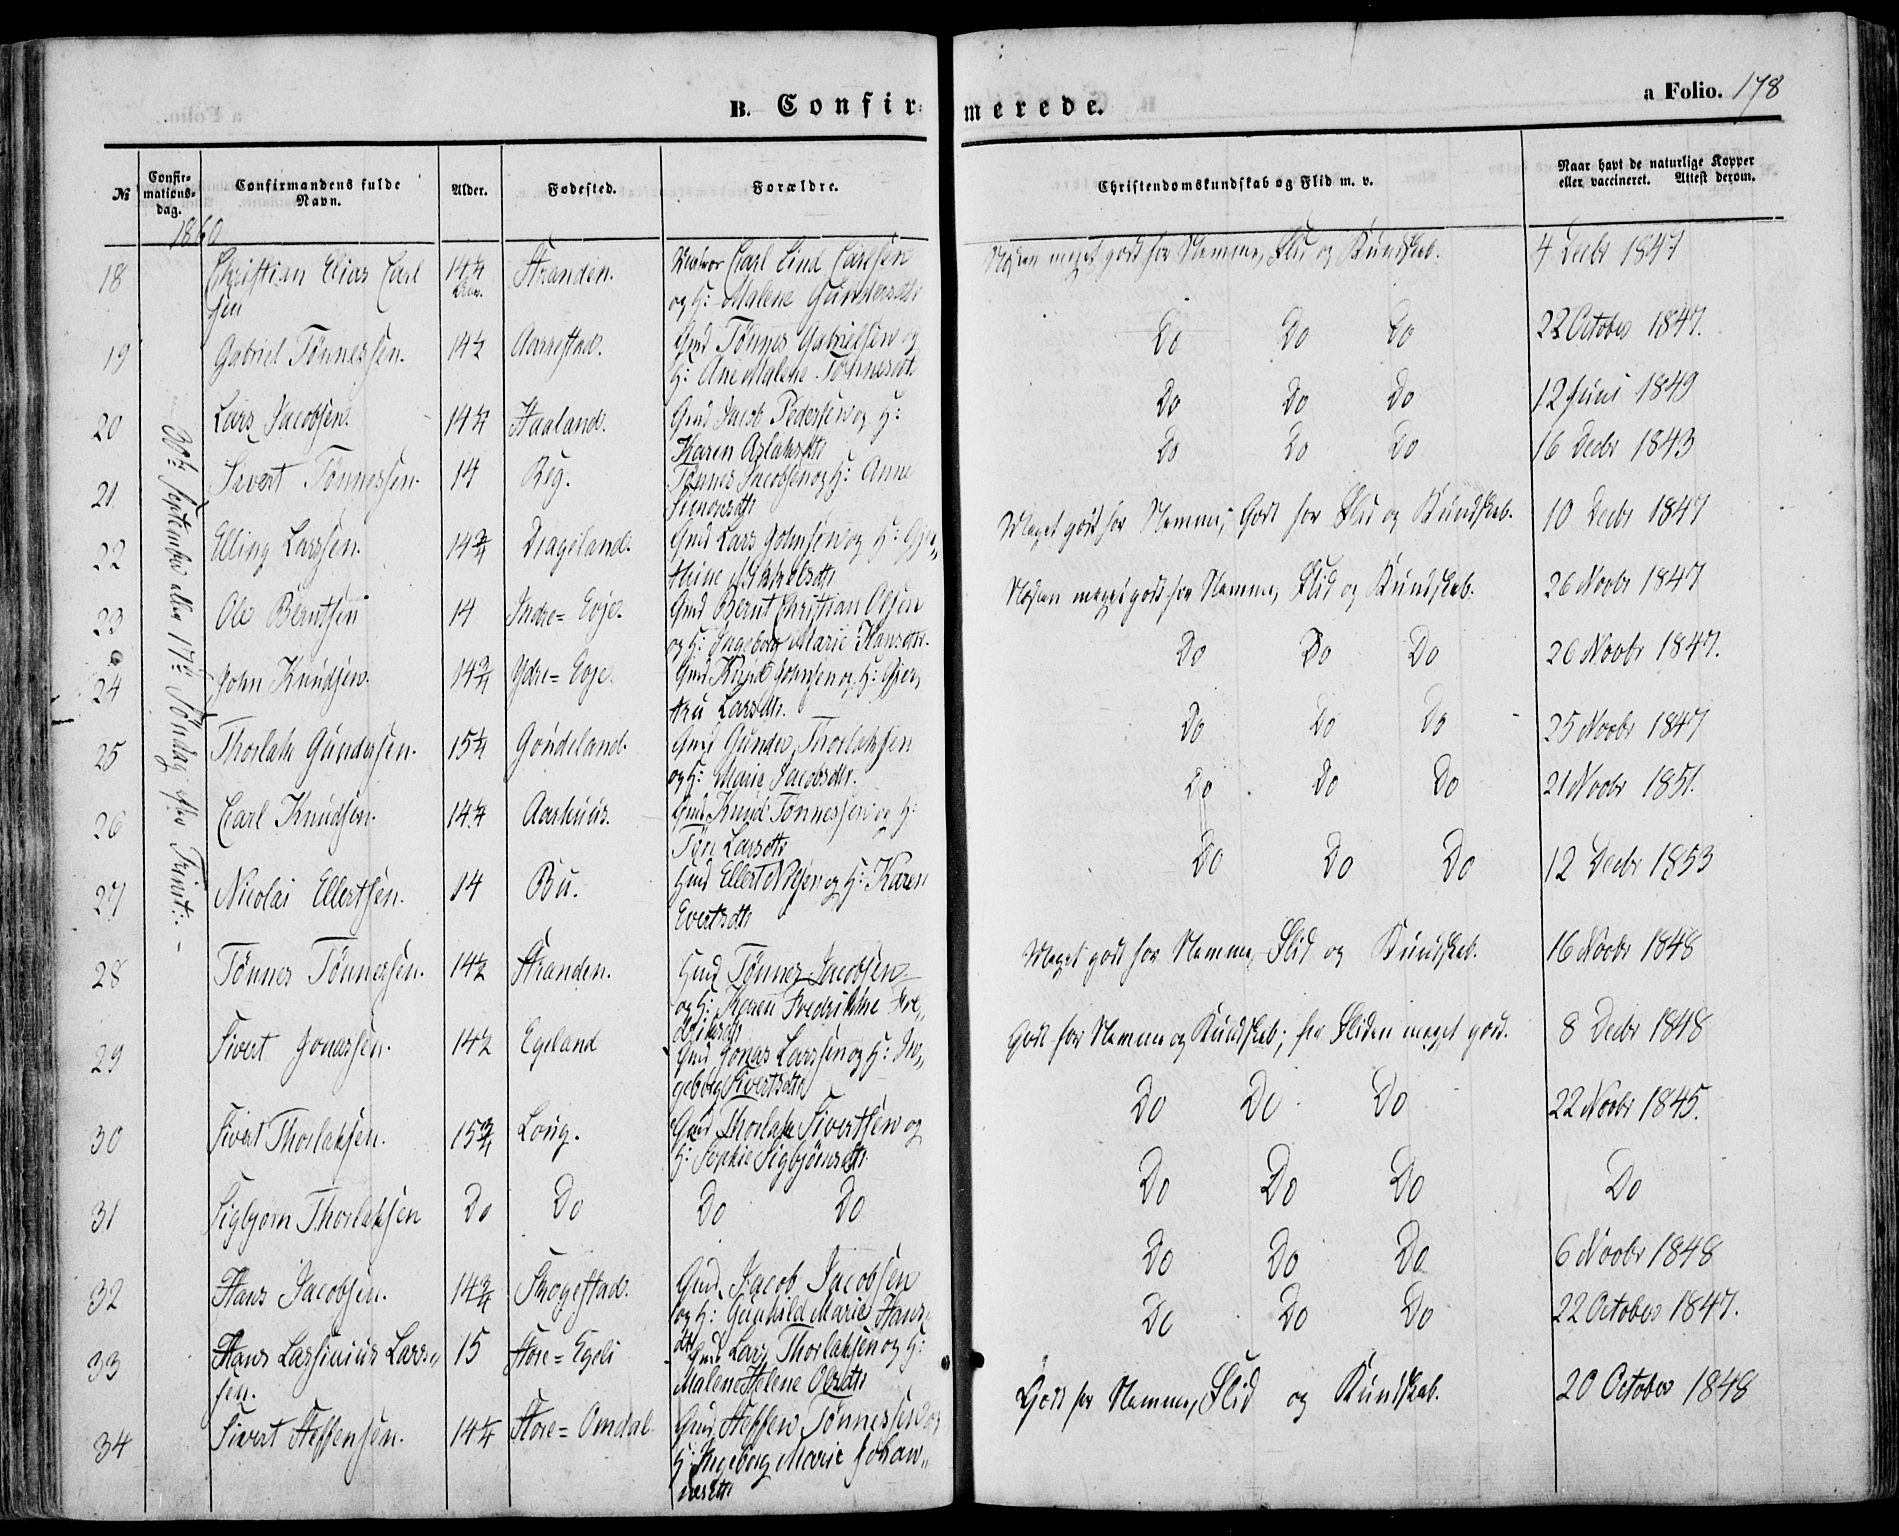 B. Confirmerede.
a Folio. 178
№
Confirmations-dag.
Confirmandens fulde Navn.
Alder.
Fødested.
Forældre.
Christendomskundskab og Flid m. v.
Naar havt de naturlige Kopper eller vaccineret. Attest derom.
1860
30te September eller 17de Søndag efter Trinit:
18 Christian Elias Carl 14¼ Stranden. Carl Lind Carlsen Næsten meget godt for Nemme, Flid og Kundskab. 4 Decbr 1847
sen og H: Malene Gundersdtr
19 Gabriel Tønnessen. 14½ Aarrestad. Gmd Tønnes Gabrielsen og Do Do Do 22 October 1847.
H: Ane Malene Tønnesdtr
20 Lars Jacobsen. 14¼ Haaland. Gmd Jacob Pedersen og H: Do Do Do 12 Juni 1849
Karen Aslaksdtr
21. Sivert Tønnessen. 14 Reg. Tønnes Jacobsen og H: Anne Do Do Do 16 Decbr 1843
Simonsdtr
22 Elling Larssen. 14¾ Drageland. Gmd Lars Johnsen og H: Meget godt for Nemme; Godt for Flid og Kundskab. 10 Decbr 1847
23 Ole Berntsen 14 Indre=Eoje. Gmd Bernt Christian Olsen Næsten meget godt for Nemme, Flid og Kundskab. 26 Novbr 1847
og H: Ingeborg Marie Hansdtr.
24 John Knudsen. 14¾ Ydre=Eoje. Gmd Knud Johnsen og H: Gjer„ Do Do Do 26 Novbr 1847.
tru Larsdtr.
25 Thorlak Gundersen. 15¼ Gundeland. Gmd Gunder Thorlaksen Do Do Do 25 Novbr 1847
og H: Marie Jacobsdtr.
26 Carl Knudsen. 14¼ Aarhuus. Gmd Knud Tønnessen og H: Do Do Do 21 Novbr 1851.
Tori Larsdtr
27 Nicolai Ellertsen. 14 Bu. Gmd Ellert Nilsen og H: Karen Do Do Do 12 Decbr 1853
Evertsdtr
28 Tønnes Tønnessen. 14½ Stranden. Hmd Tønnes Jacobsen Meget godt for Nemme, Flid og Kundskab. 16 Novbr 1848
og H: Karen Fredrikke Fre„
driksdtr
29 Sivert Jonassen. 14½ Egeland Gmd Jonas Larssen og H: In„ Godt for Nemme og Kundskab; for Fliden meget godt. 8 Decbr 1848
geborg Sivertsdtr
30 Sivert Thorlaksen. 15¾ Loug. Gmd Thorlak Sivertsen og Do Do Do 22 Novbr 1845.
H: Sophie Sigbjørnsdtr
31 Sigbjørn Thorlaksen Do Do Do Do Do Do Do Do
32 Hans Jacobsen. 14¾ Skogestad. Gmd Jacob Jacobsen Do Do Do 6 Novbr 1848
og H: Gunhild Marie Hans
dtr
33 Hans Larsinius Lars„ 15 Store=Egeli Gmd Lars Thorlaksen og H: Do Do Do 22 October 1847.
sen. Malene Helene Olsdtr
34 Sivert Steffensen. 14¼ Store=Omdal Gmd Steffen Tønnessen og Godt for Nemme, Flid og Kundskab. 20 October 1848
H: Ingeborg Marie Johan„
nesdtr